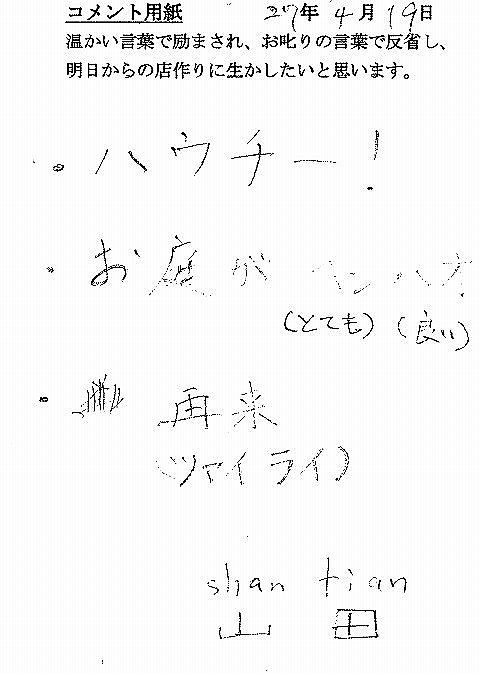 コメント用紙 27年4月19日
温かい言葉で励まされ、お叱りの言葉で反省し、
明日からの店作りに生かしたいと思います。
・ハウチー!
・お庭が ヘンハオ!
(とても)(良い)
・再来
(ツァイライ)
shan tian
山田